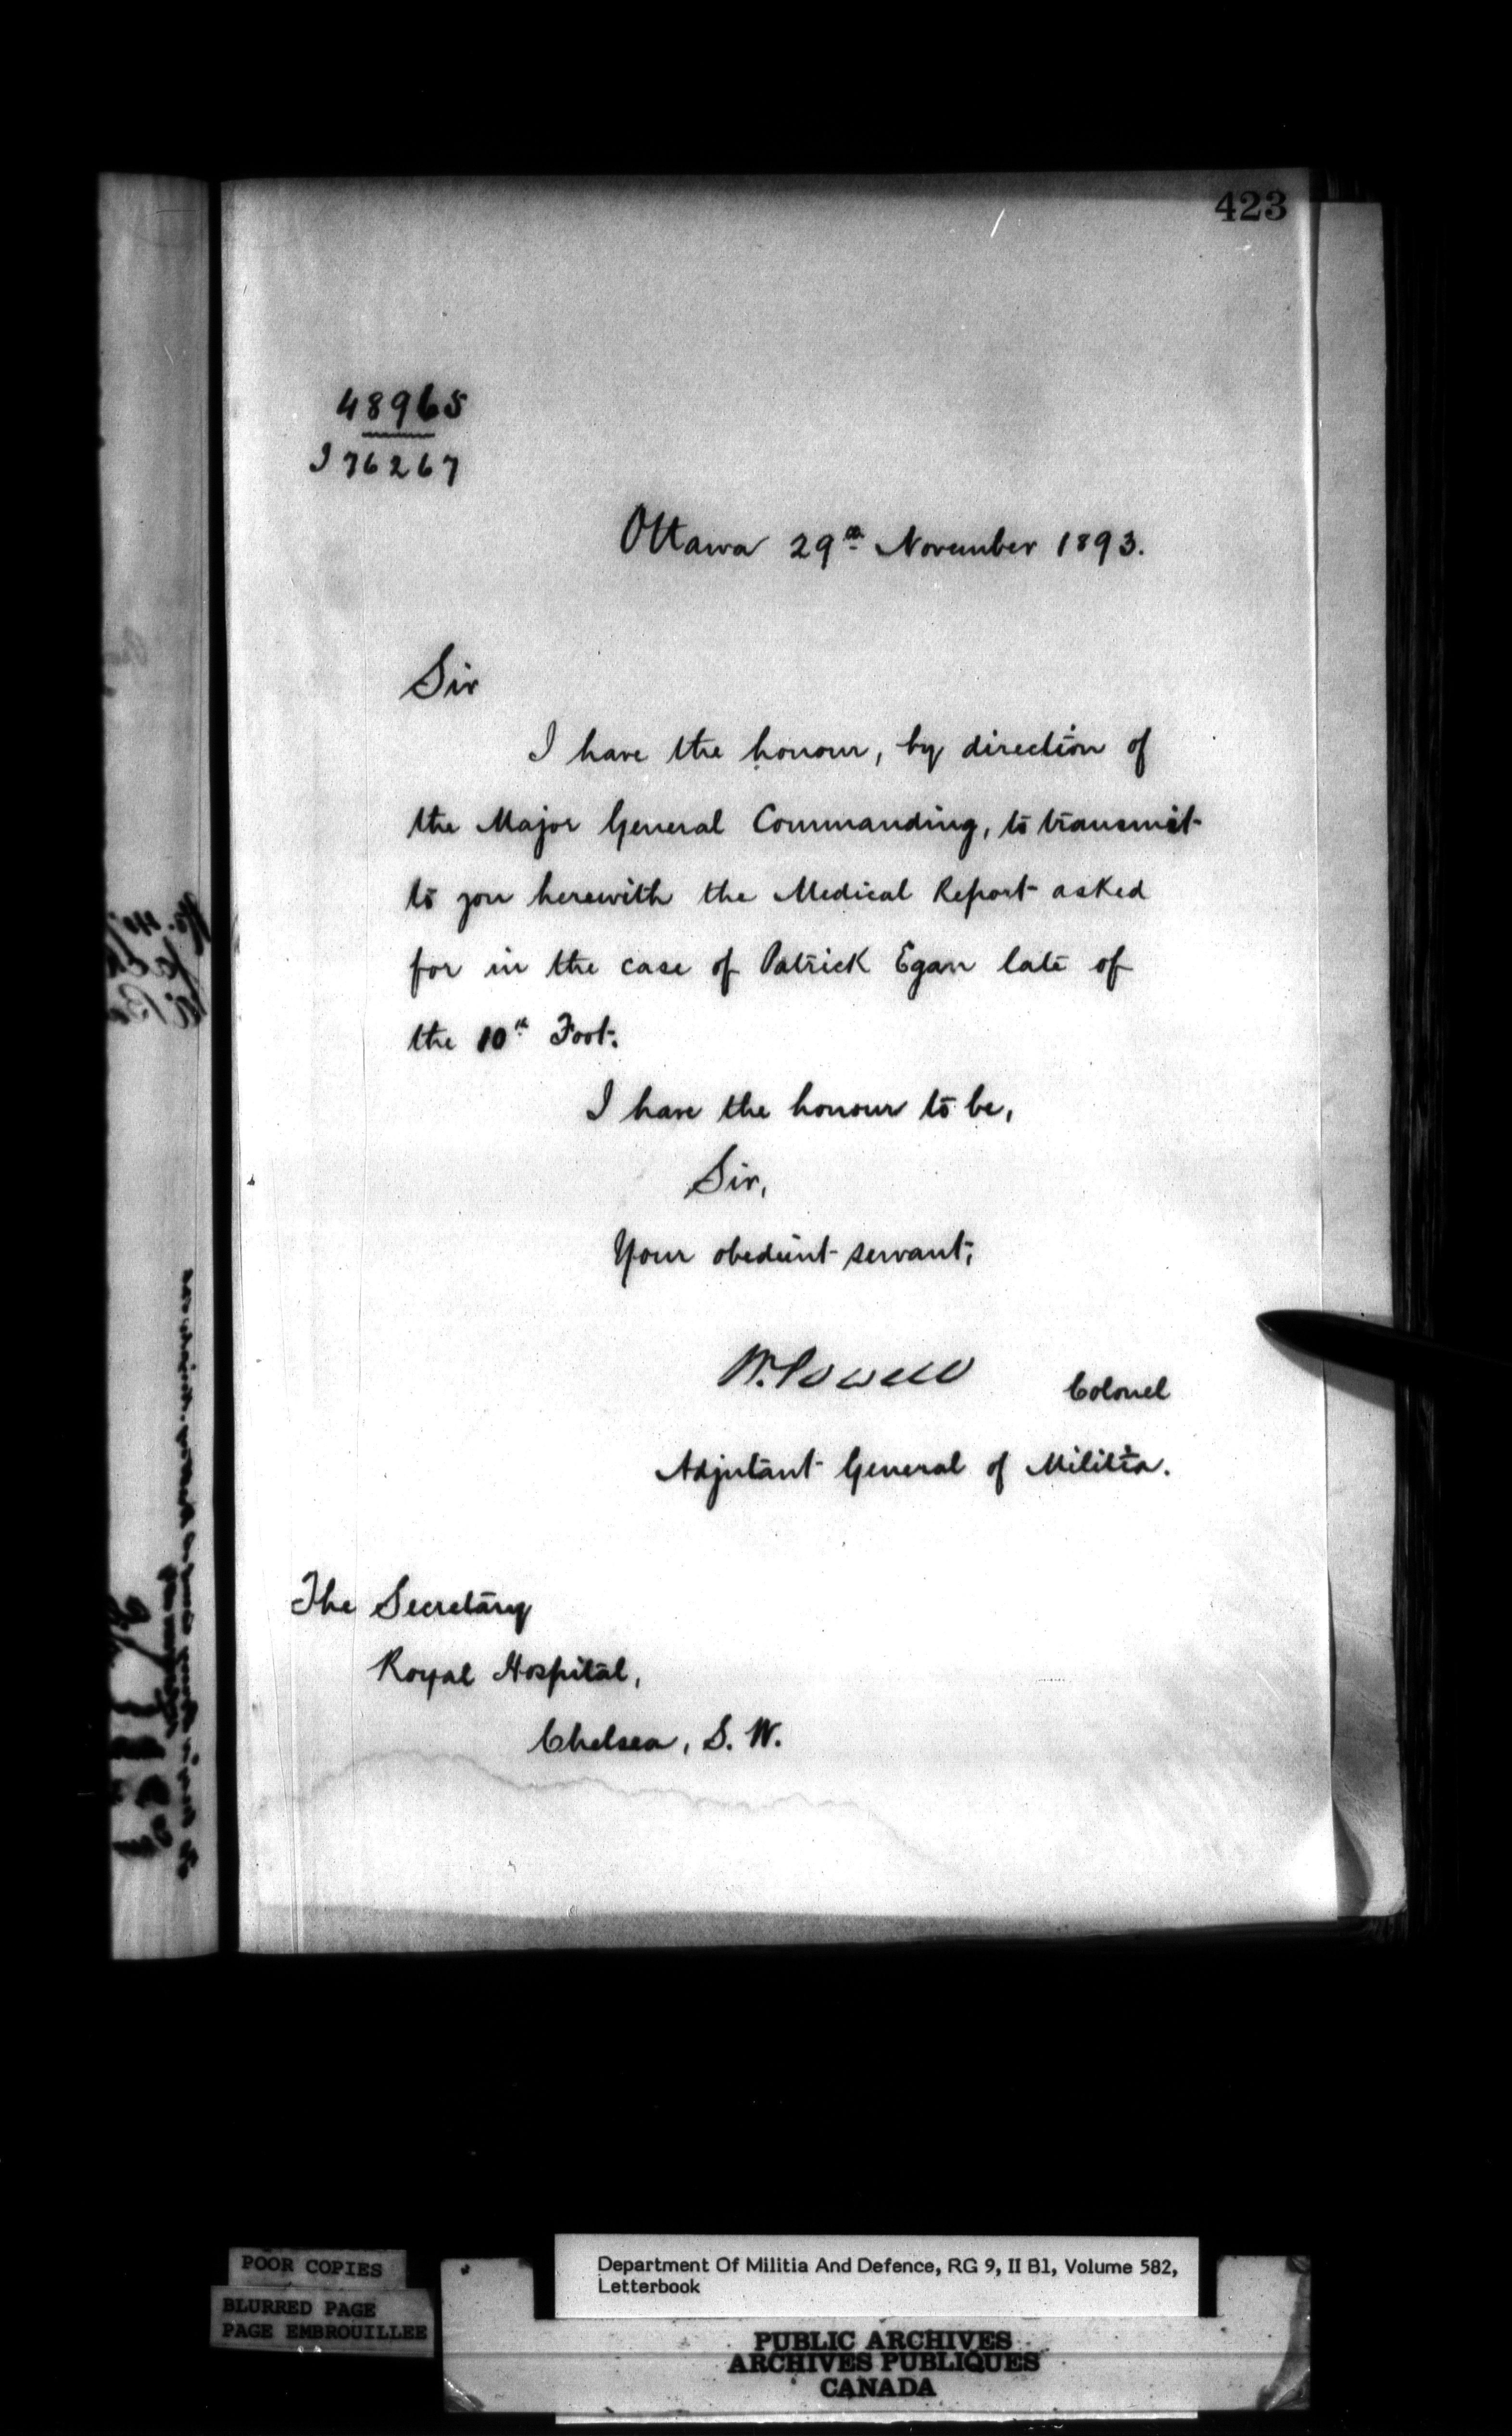 423
48965
I 76267
Ottawa 29th November 1893.
Sir
I have the honour, by direction of
the Major General Commanding, to transmit
to you herewith the Medical Report asked
for in the case of Patrick Egan late of
the 10th Foot.
I have the honour to be,
Sir,
Your obedient servant,
W. Powell Colonel
Adjutant General of Militia.
The Secretary
Royal Hospital,
Chelsea, S. W.
POOR COPIES
BLURRED PAGE
PAGE EMBROUILLEE
Department Of Militia And Defence, RG 9, II B1, Volume 582,
Letterbook
PUBLIC ARCHIVES
ARCHIVES PUBLIQUES
CANADA